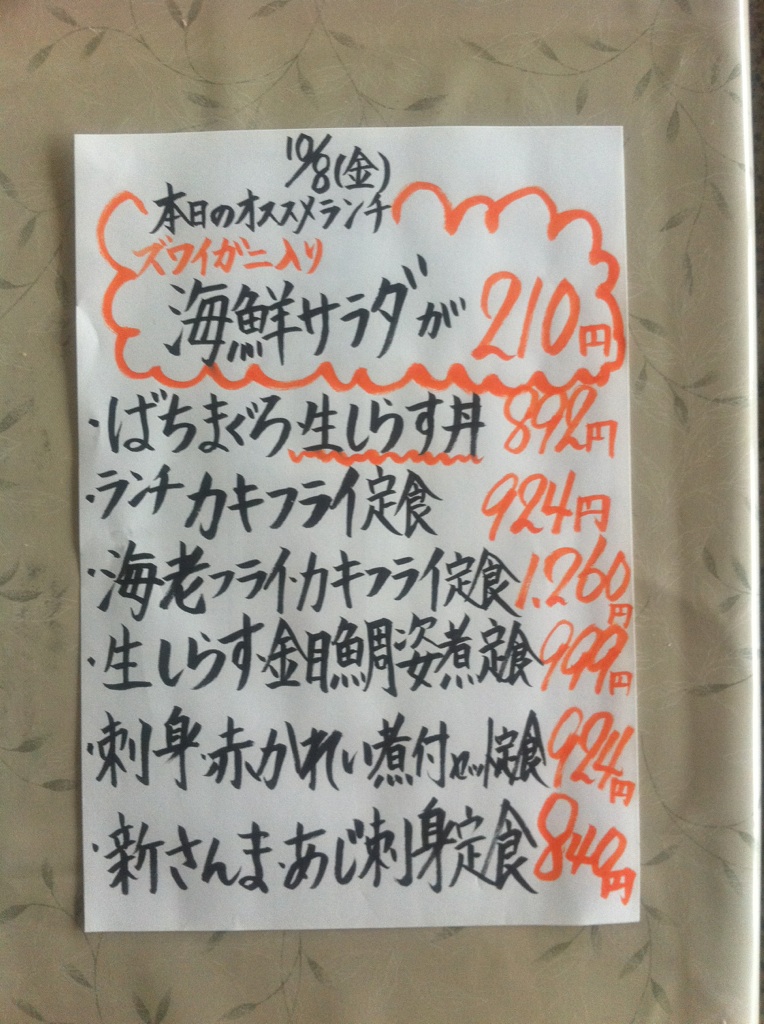 10/8(金)
本日のオススメランチ
ズワイガニ入り
海鮮サラダが 210円
・ばちまぐろ・生しらす丼 892円
・ランチカキフライ定食 924円
・海老フライ・カキフライ定食 1,260円
・生しらす・金目鯛姿煮定食 999円
・刺身・赤かれい煮付セット定食 924円
・新さんま・あじ刺身定食 840円